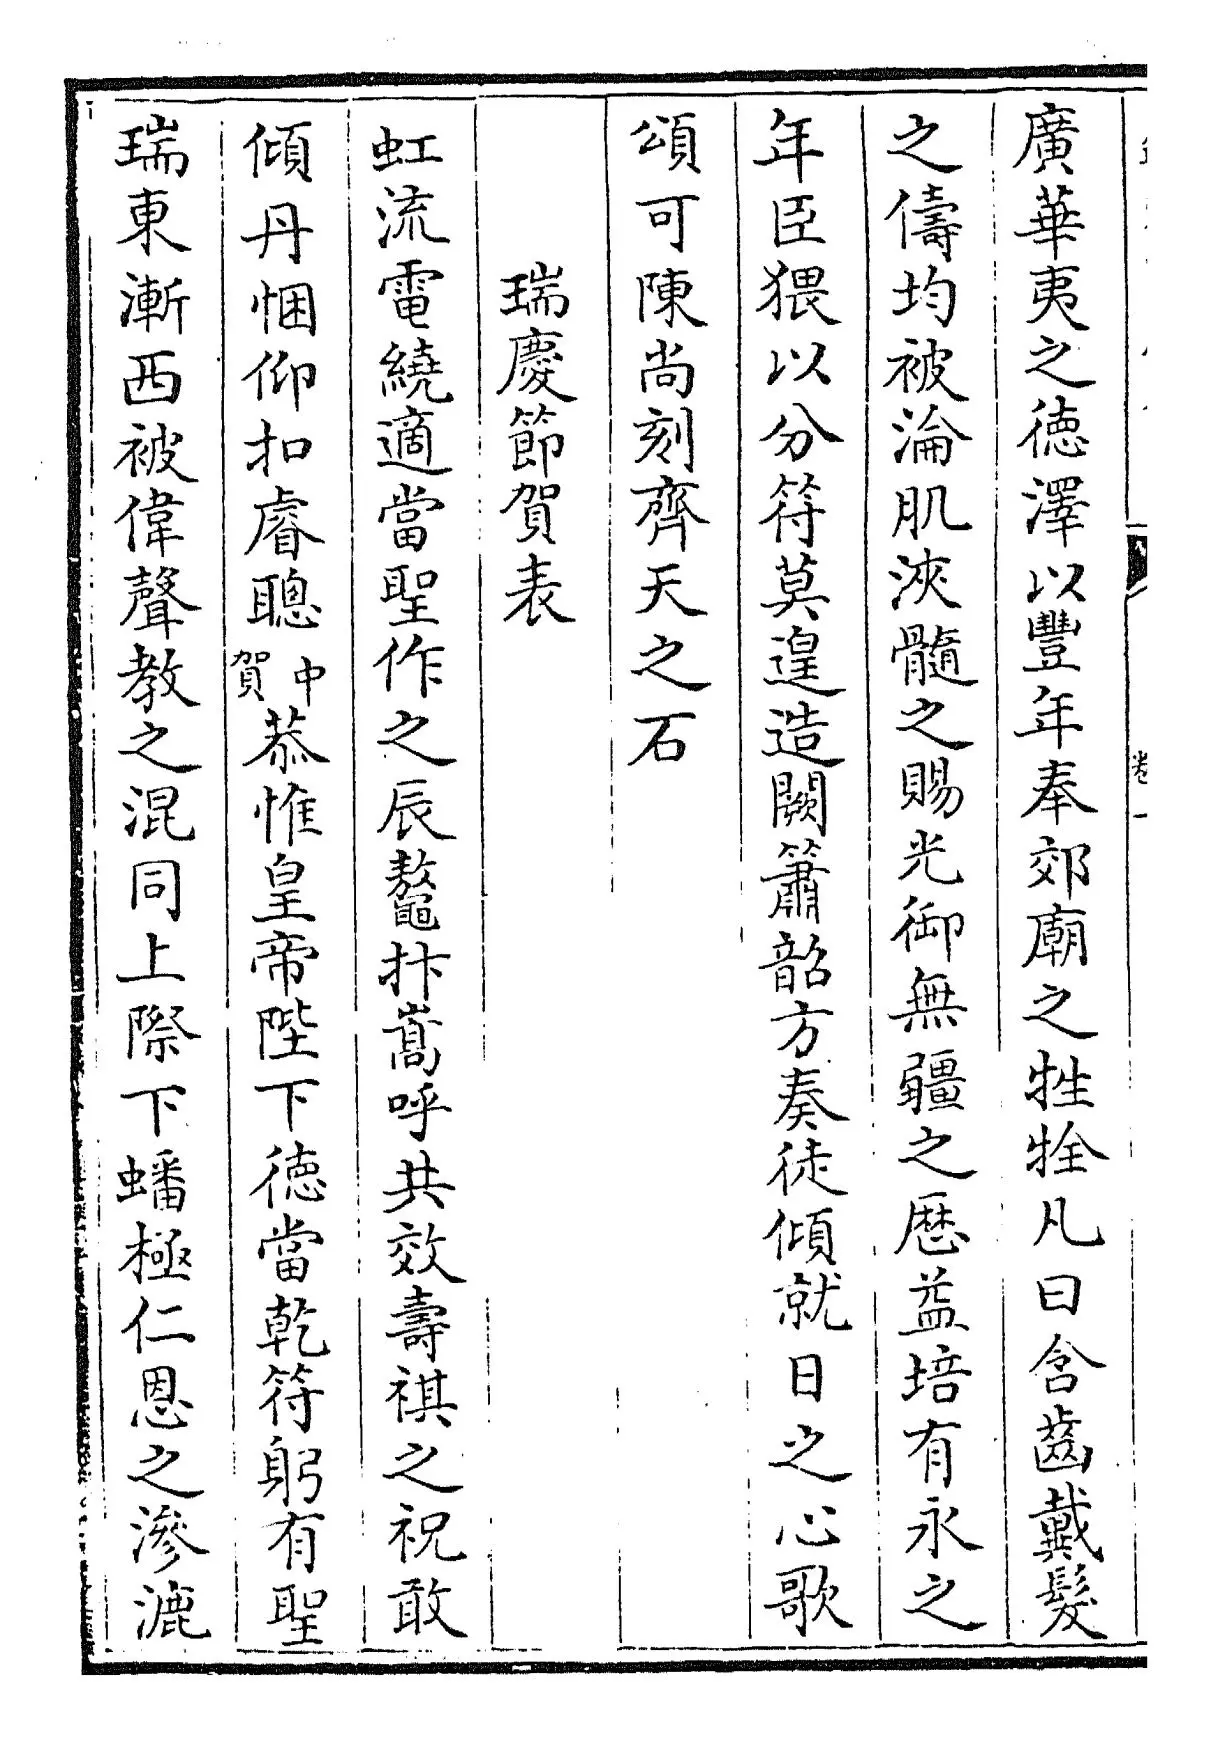 廣華夷之德澤以豐年奉郊廟之牲牷凡曰含齒戴髮
之儔均被淪肌浹髓之賜光御無疆之厯益培有永之
年臣猥以分符莫遑造闕簫韶方奏徒傾就日之心歌
頌可陳尚刻齊天之石
瑞慶節賀表
虹流電繞適當聖作之辰鼇抃嵩呼共效壽祺之祝敢
傾丹悃仰扣睿聰中賀恭惟皇帝陛下德當乾符躬有聖
瑞東漸西被偉聲教之混同上際下蟠極仁恩之滲漉